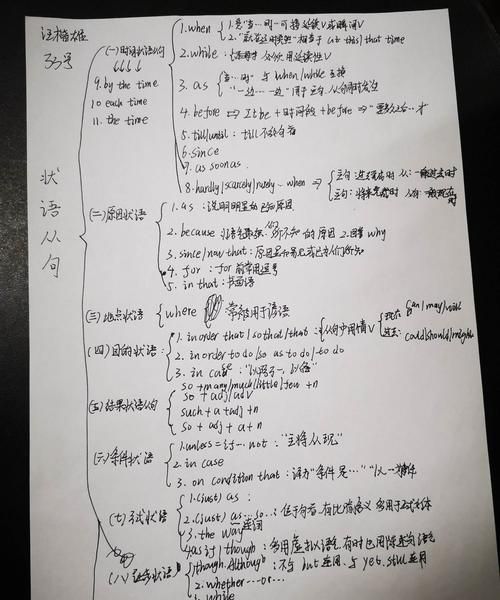 汪楷雄
33号
状语从句
(一)时间状语从句
↓↓↓↓
9. by the time
10 each time
11. the time
1. when 1. 意"当…时" 可接延续V或瞬间V
2. 相当于 (at this) that time
2. while: 用延续性V
3. as "当…时" 与 when/while 互换
"一边…一边" 用于主句、从句同时发生
4. before ⇒ It be + 时间段 + before ⇒ "才
5. till/until: till 不放句首
6. since
7. as soon as
8. hardly/scarcely/rarely … when ⇒ 主句 过去完成时 从: 一般过去时
主句: 将来完成时 从句: 一般现在时
(二)原因状语
1. as: 说明明显的已知原因
2. because 语气最强, 所不知的原因 2. 回答 why
3. since/now that: 原因是
4. for: for 前常用逗号
5. in that: 书面语
(三)地点状语 where 常被用于谚语
(四)目的状语:
1. in order that / so that / that: 从句中用情V 现在 can/may/will
过去: could/should/might
2. in order to do / so as to do / to do
3. in case: "以防…, 以免"
(五)结果状语从句
so + many/much/little/few + n
so + adj/adv
such + a + adj + n
so + adj + a + n
(六)条件状语
1. unless = if … not: "主将从现"
2. in case
3. on condition that: 译为"条件是…"
(七)方式状语
1. (just) as:
2. (just) as … so …: 位于句首, 有比喻含义 多用于正式文体
3. the way
4. as if / though: 多用虚拟语气, 有时也用陈述语气
(八)让步状语
1. though. Although: 不与 but 连用, 与 yet, still 连用
2. whether … or …
3. while